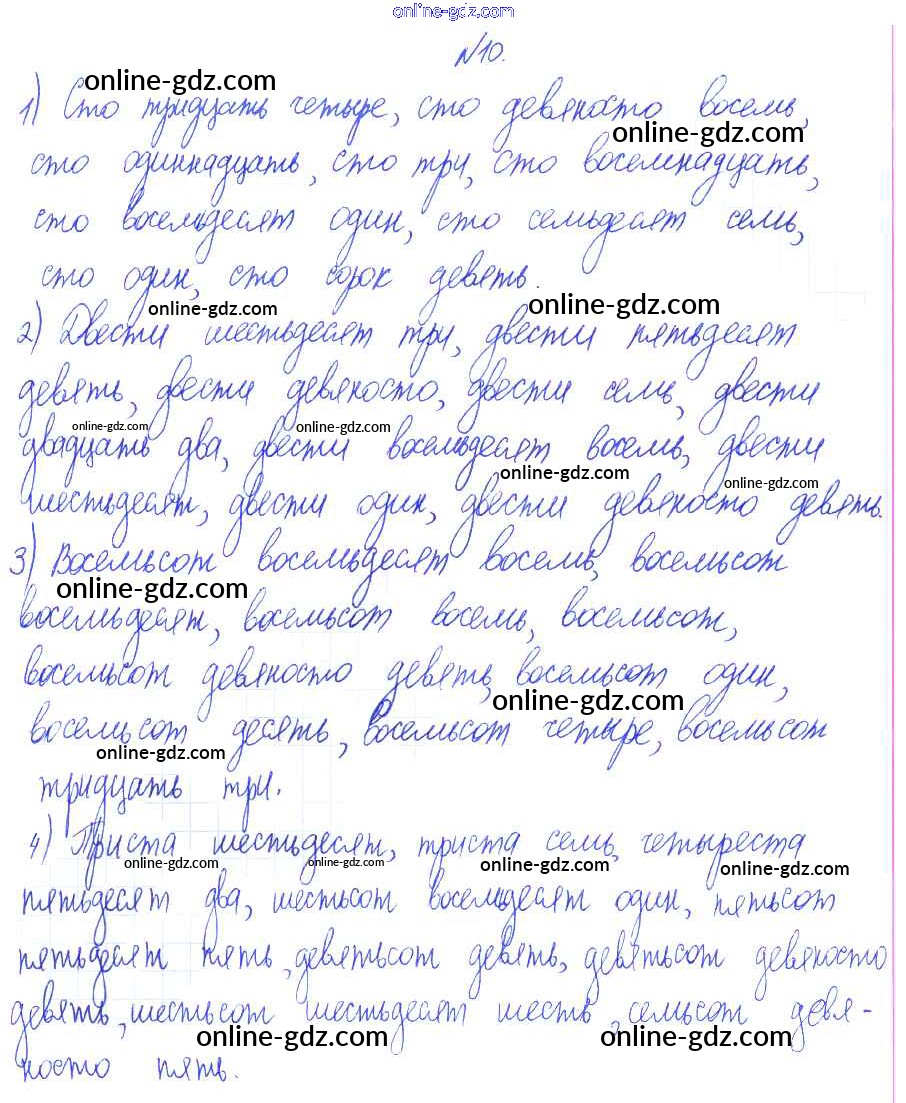 online-gdz.com
№10.
online-gdz.com
1) Сто тридцать четыре, сто девяносто восемь,
online-gdz.com
сто одиннадцать, сто три, сто восемнадцать,
сто восемьдесят один, сто семьдесят семь,
сто один, сто сорок девять.
online-gdz.com online-gdz.com
2) Двести шестьдесят три, двести пятьдесят
девять, двести девяносто, двести семь, двести
online-gdz.com online-gdz.com
двадцать два, двести восемьдесят восемь, двести
online-gdz.com online-gdz.com
шестьдесят, двести один, двести девяносто девять.
3) Восемьсот восемьдесят восемь, восемьсот
online-gdz.com
восемьдесят, восемьсот восемь, восемьсот,
восемьсот девяносто девять, восемьсот один,
online-gdz.com
восемьсот десять, восемьсот четыре, восемьсот
online-gdz.com
тридцать три.
4) Триста шестьдесят, триста семь, четыреста
online-gdz.com online-gdz.com online-gdz.com online-gdz.com
пятьдесят два, шестьсот восемьдесят один, пятьсот
пятьдесят пять, девятьсот девять, девятьсот девяносто
девять, шестьсот шестьдесят шесть, семьсот девя-
online-gdz.com online-gdz.com
носто пять.